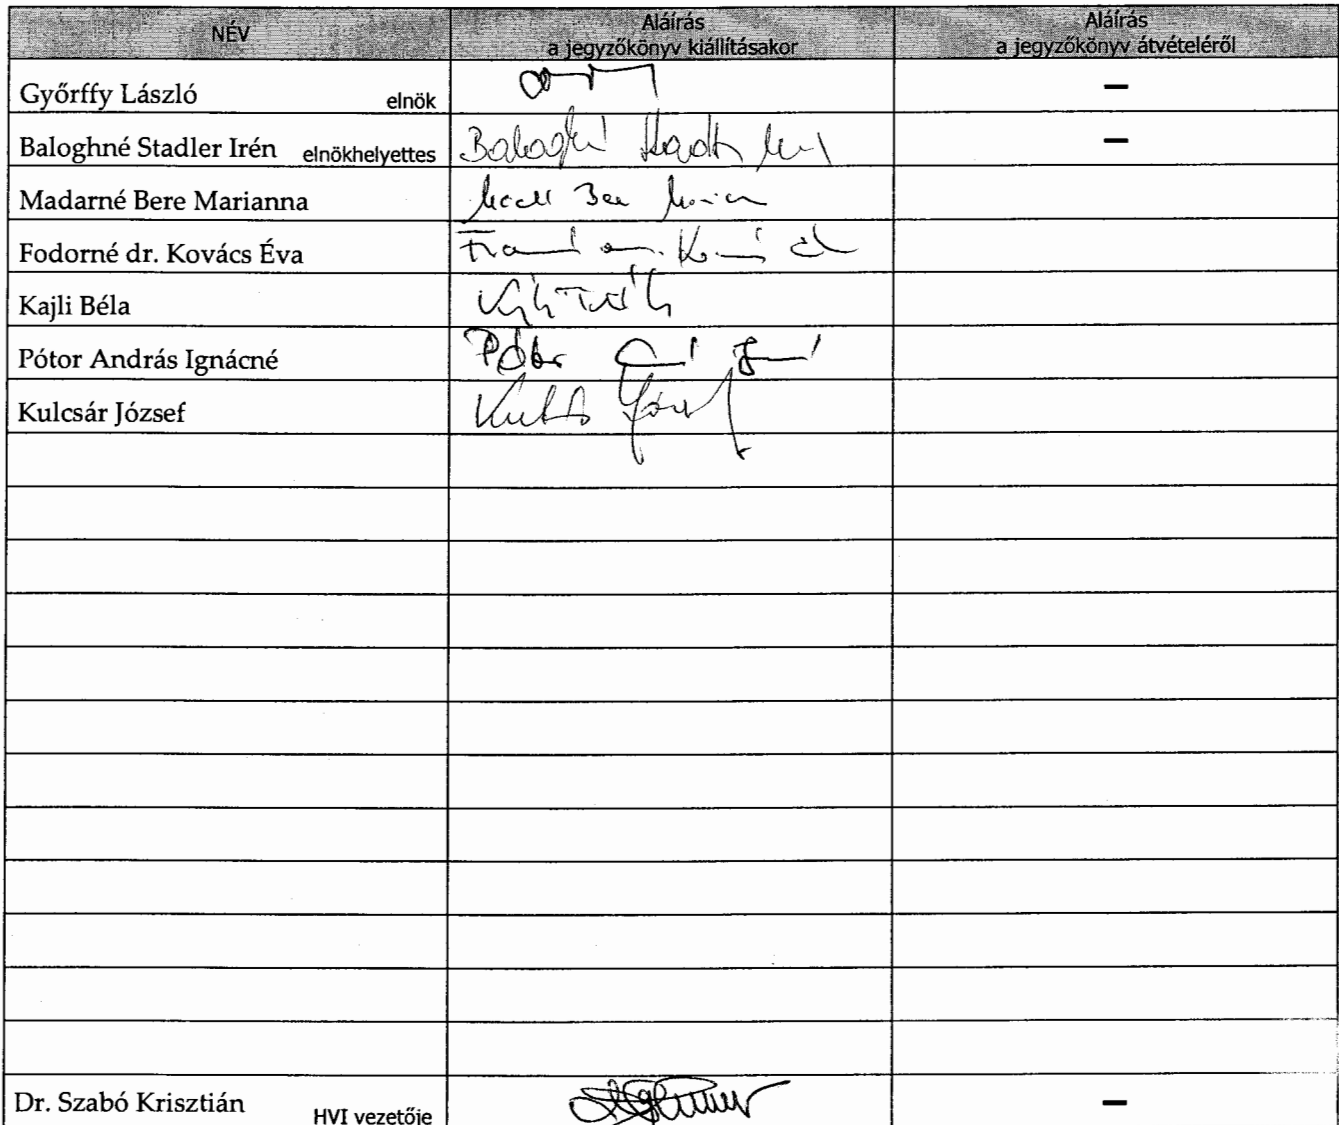 NÉV
Aláírás
a jegyzőkönyv kiállításakor
Aláírás
a jegyzőkönyv átvételéről
Győrffy László elnök –
Baloghné Stadler Irén elnökhelyettes Baloghné Stadler Irén –
Madarné Bere Marianna
Fodorné dr. Kovács Éva
Kajli Béla
Pótor András Ignácné Pótor
Kulcsár József Kulcsár József
Dr. Szabó Krisztián HVI vezetője –